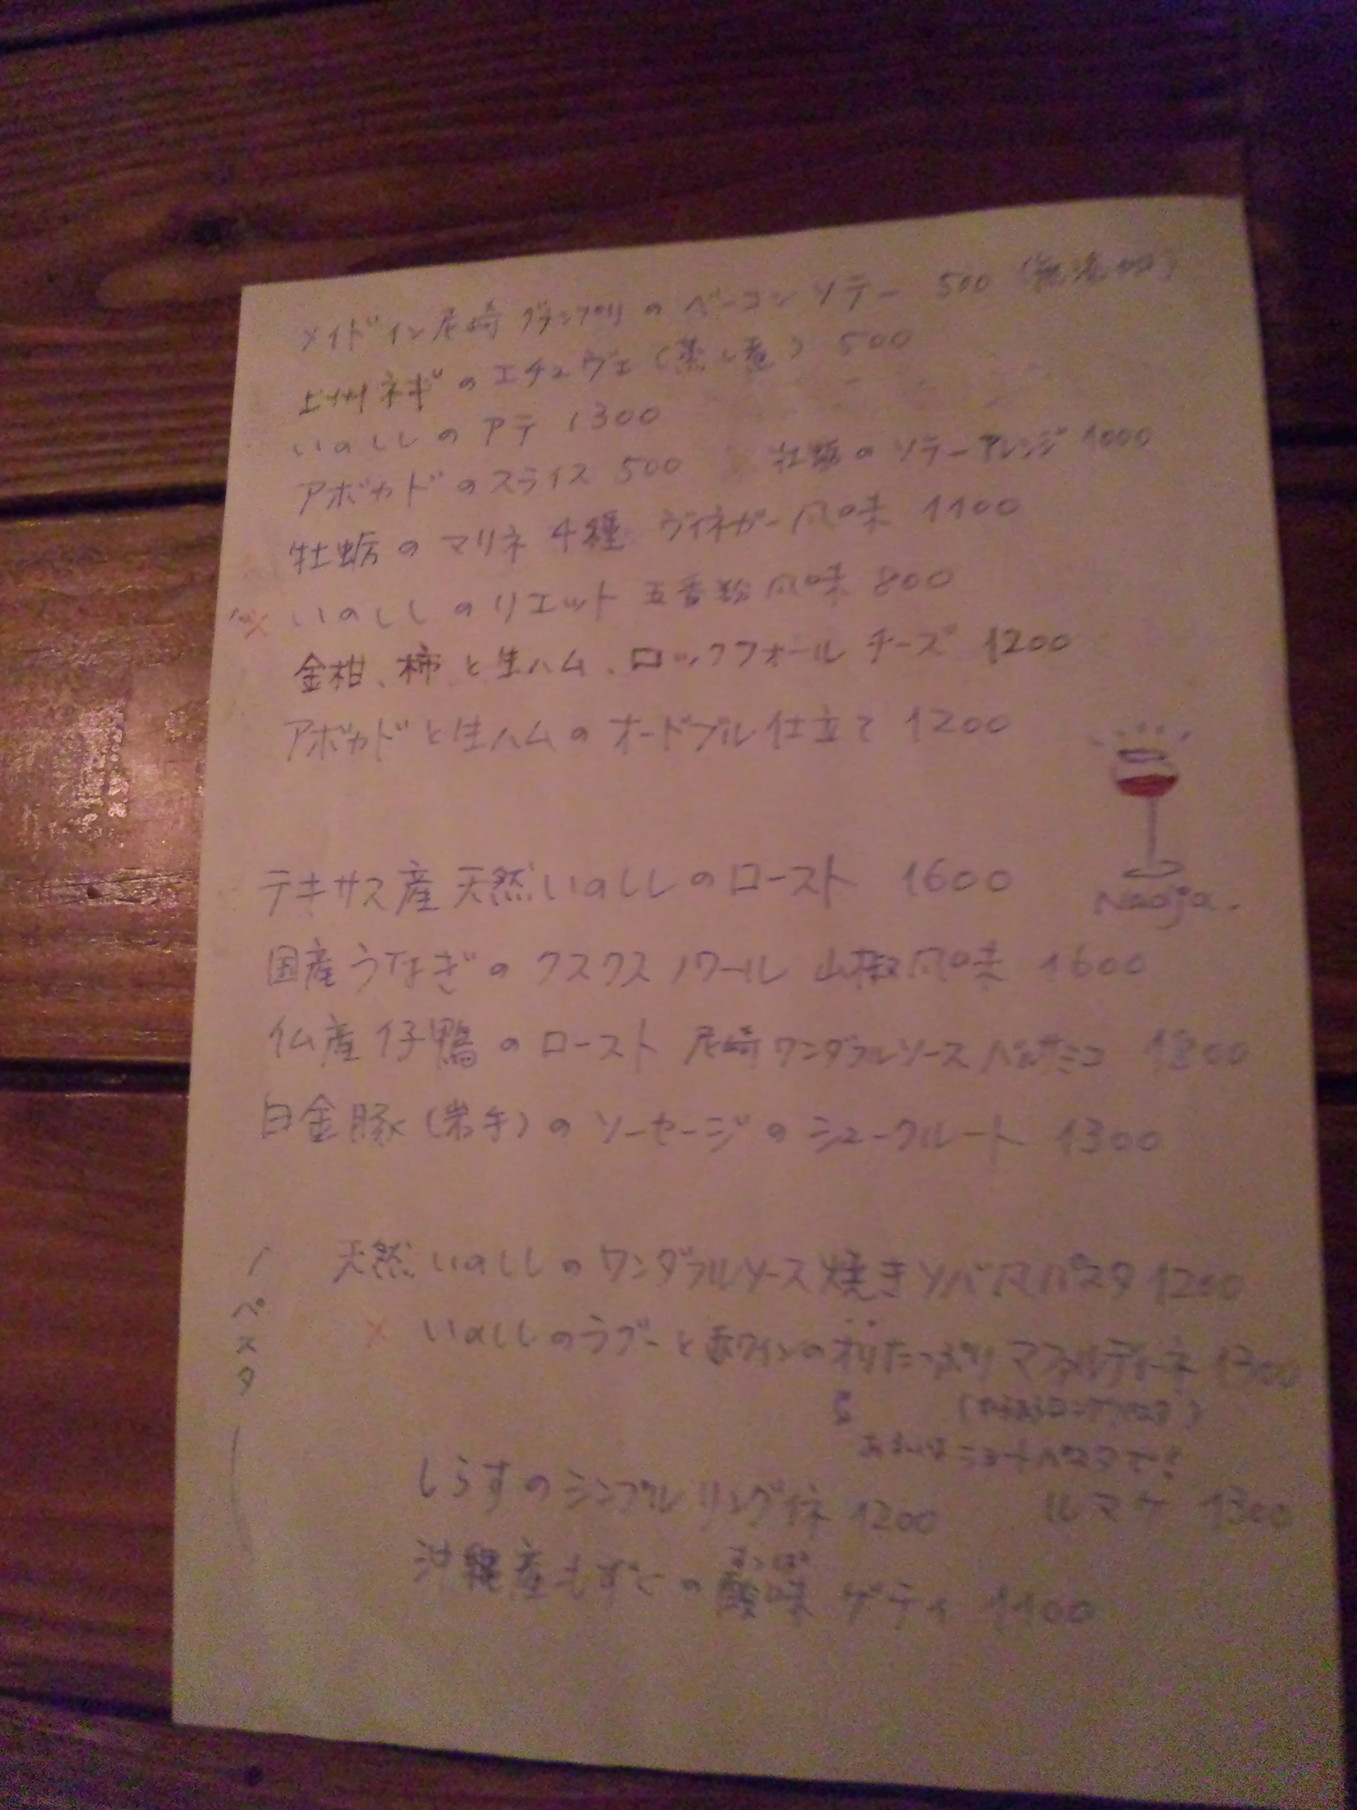 メイドイン尼崎グランプリのベーコンソテー 500
上州ネギのエチュヴェ(蒸し煮) 500
いのししのアテ 1300
アボカドのスライス 500 牡蛎のソテーアレンジ 1000
牡蛎のマリネ 4種 ヴィネガー風味 1100
いのししのリエット 五香粉風味 800
金柑、柿と生ハム、ロックフォールチーズ 1200
アボカドと生ハムのオードブル仕立て 1200
テキサス産天然いのししのロースト 1600
国産うなぎのクスクス ノワール 山椒風味 1600
仏産仔鴨のロースト 尼崎ワンダフルソース バルサミコ
白金豚(岩手)のソーセージのシュークルート 1300
パスタ
天然いのししのワンダフルソース焼きソバ パスタ 1200
いのししのラグーと赤ワインのオリたっぷり マファルディーネ 1300
あるいはショートパスタで!
しらすのシンプルリングイネ 1200 ルマケ 1300
すっぱ
沖縄産もずくの酸味 ゲティ 1100